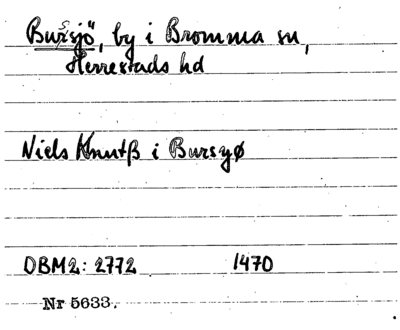 Bursjö, by i Bromma sn,
Herrestads hd
Niels Knutß i Bursyø
DBM2: 2772 1470
Nr 5633.